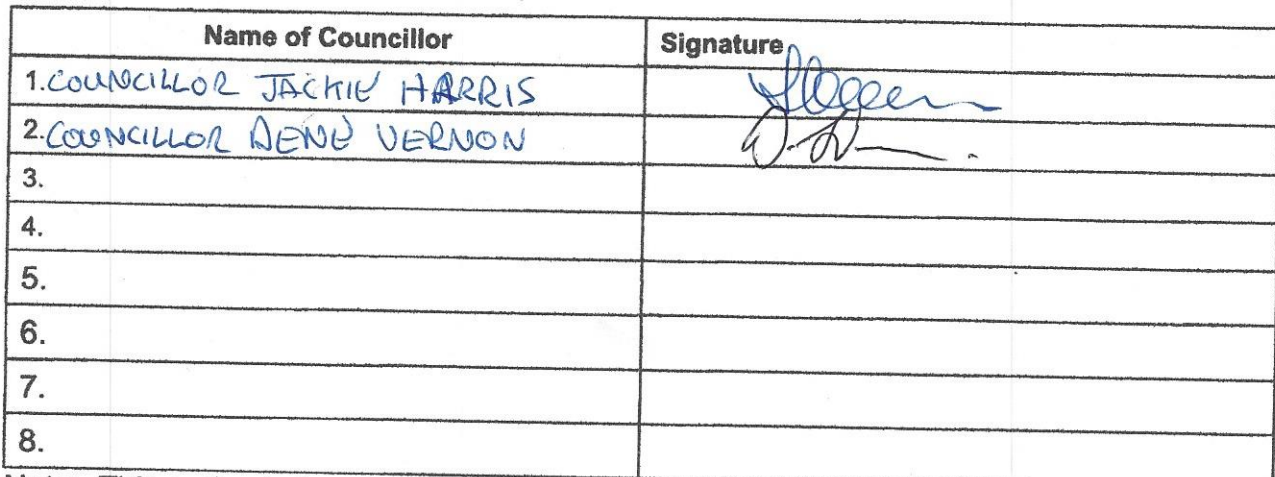 Name of Councillor Signature
1. COUNCILLOR JACKIE HARRIS
2. COUNCILLOR DENE VERNON
3.
4.
5.
6.
7.
8.